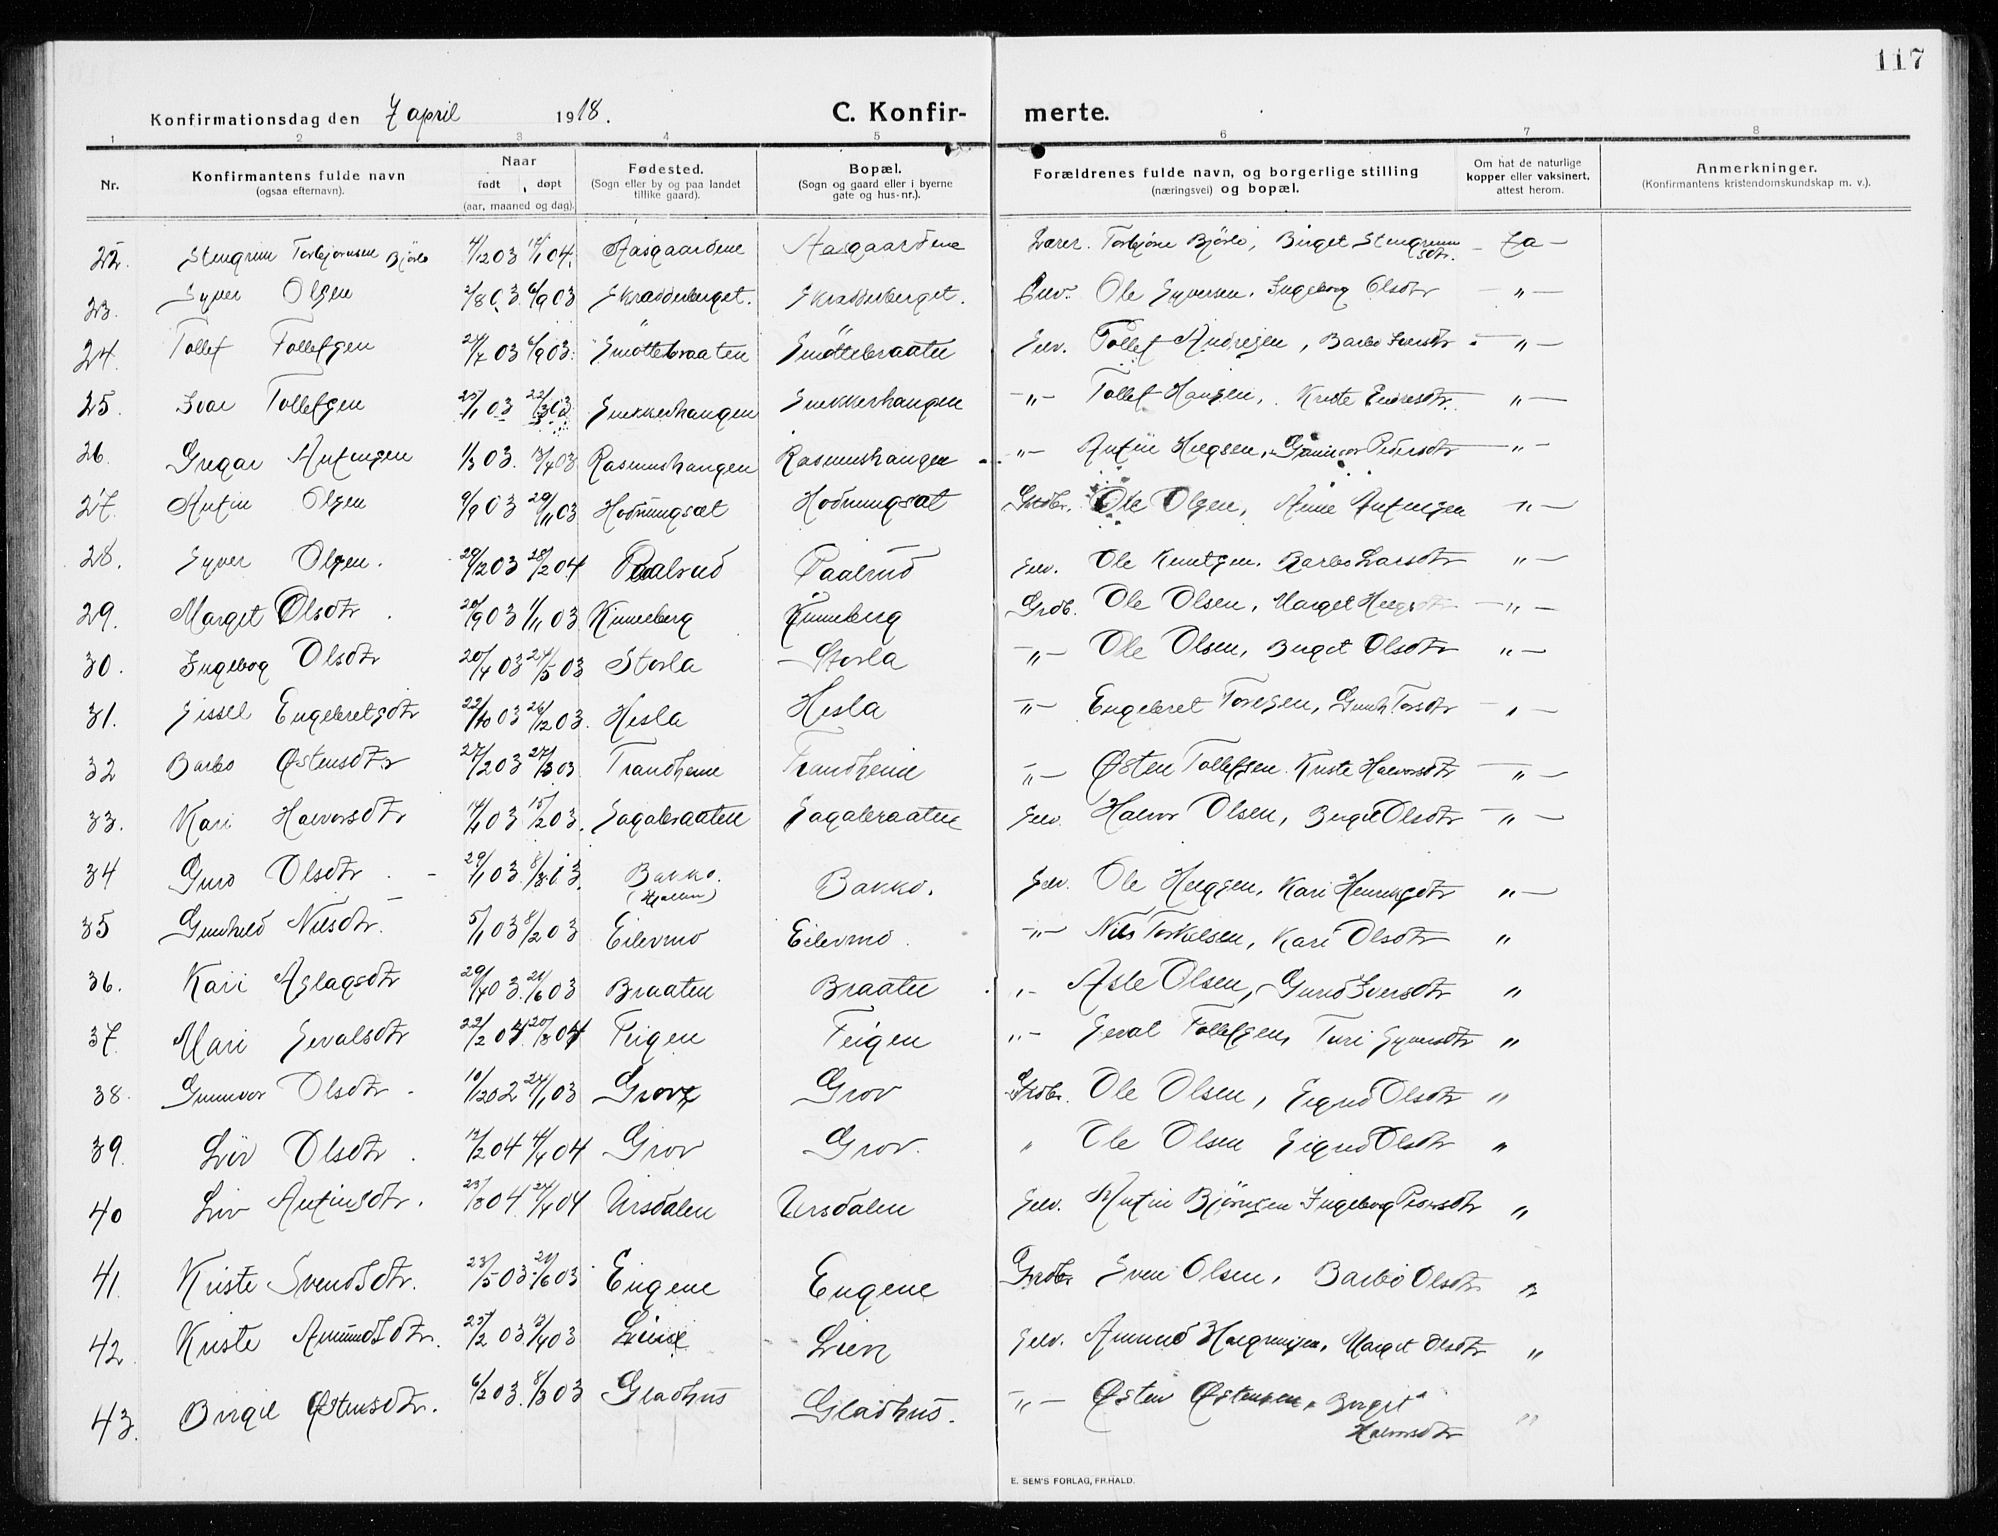 117
Konfirmationsdag den 7 april 1918. C. Konfir- merte.
1 2 3 4 5 6 7 8
Nr. Konfirmantens fulde navn (ogsaa efternavn). Naar født, døpt (aar, maaned og dag). Fødested. (Sogn eller by og paa landet tillike gaard). Bopæl. (Sogn og gaard eller i byerne gate og hus-nr.). Forældrenes fulde navn, og borgerlige stilling (næringsvei) og bopæl. Om hat de naturlige kopper eller vaksinert, attest herom. Anmerkninger. (Konfirmantens kristendomskundskap m. v.).
22. Stengrim Torbjørnsen Bjørlo 4/12 03 Aasgaardene Aasgaardene Lærer. Torbjørn Bjørlo, Birget Stengrimsdtr. - Ja -
23. Syver Olsen 2/8 03 6/9 03 Skradderberget. Skradderberget. Selv. Ole Syversen, Ingeborg Olsdtr - " -
24. Tollef Tollefsen 6/9 03. Smøttebraaten Smøttebraaten Selv. Tollef Andresen, Barbo Iversdtr - " -
25. Ivar Tollefsen 25/1 03 22/3 03 Snekkerhaugen Snekkerhaugen - " - Tollef Hansen, Kriste Endresdtr. " -
26. Gregar Antinsen 1/3 03. 13/4 03 Rasmushaugen Rasmushaugen - " - Antin Helgsen, Gunnvor Pedersdtr - " -
27. Antin Olsen 9/9 03 29/11 03 Hodnungsæt Hodnungsæt Grdbr. Ole Olsen, Anne Antinsen " -
28. Syver Olsen. 29/12 03 28/2 04 Paalsrud Paalrud Selv. Ole Knutsen. Barbo Larsdtr " -
29. Margit Olsdtr. 20/9 03 1/11 03 Kinneberg Kinneberg Grdb. Ole Olsen, Marget Helgsdtr - " -
30. Ingebog Olsdtr 20/4 03 24/5 03 Storla Storla - " - Ole Olsen, Birget Olsdtr " -
31. Sissel Engebretsdtr 22/10 03 26/12 03. Hesla Hesla - " - Engebret Toresen, Gunh. Torsdtr - " -
32 Barbo Østensdtr 27/2 03 27/3 03 Trandheim Trandheim " - Østen Tollefsen. Kriste Halvorsdtr - " -
33. Kari Halvorsdtr 14/1 03 15/2 03. Sagabraaten Sagabraaten Selv. Halvor Olsen, Birgit Olsdtr - " -
34 Guro Olsdtr. - 29/1 03. 8/3 03. Bakko. Bakko. Selv. Ole Helgsen, Kari Henriksdtr " -
35 Gunhild Nilsdtr. 5/1 03 8/2 03 Eilevmo Eilevmo. - " - Nils Torkelsen, Kari Olsdtr "
36. Kari Aslagsdtr 29/4 03. 21/6 03 Braaten Braaten " - Asle Olsen, Guro Iversdtr "
37. Mari Sevalsdtr 22/2 04 20/3 04 Teigen Teigen " - Seval Tollefsen, Turi Syversdtr "
38. Gunnvor Olsdtr. 10/12 02 24/1 03 Grov Grov Grdbr. Ole Olsen, Sigrid Olsdtr "
39. Liv Olsdtr. 12/2 04 4/4 04 Grov Grov. " Ole Olsen Sigrid Olsdtr "
40 Liv Antinsdtr. 23/3 04. 24/4 04 Ursdalen Ursdalen Selv. Antin Bjørnsen Ingeborg Pedersdtr "
41. Kriste Svendsdtr. 23/5 03. 21/6 03 Engene Engene Grdbr Sven Olsen, Barbo Olsdtr "
42. Kriste Amundsdtr. 25/2 03. 13/4 03 Lien Lien Selv. Amund Halgrimsen, Marget Olsdtr "
43. Birgit Østensdtr. 6/2 03. 8/3 03 Gladhus Gladhus. " - Østen Østensen, Birgit Halvorsdtr "
E. SEM'S FORLAG, FR.HALD.